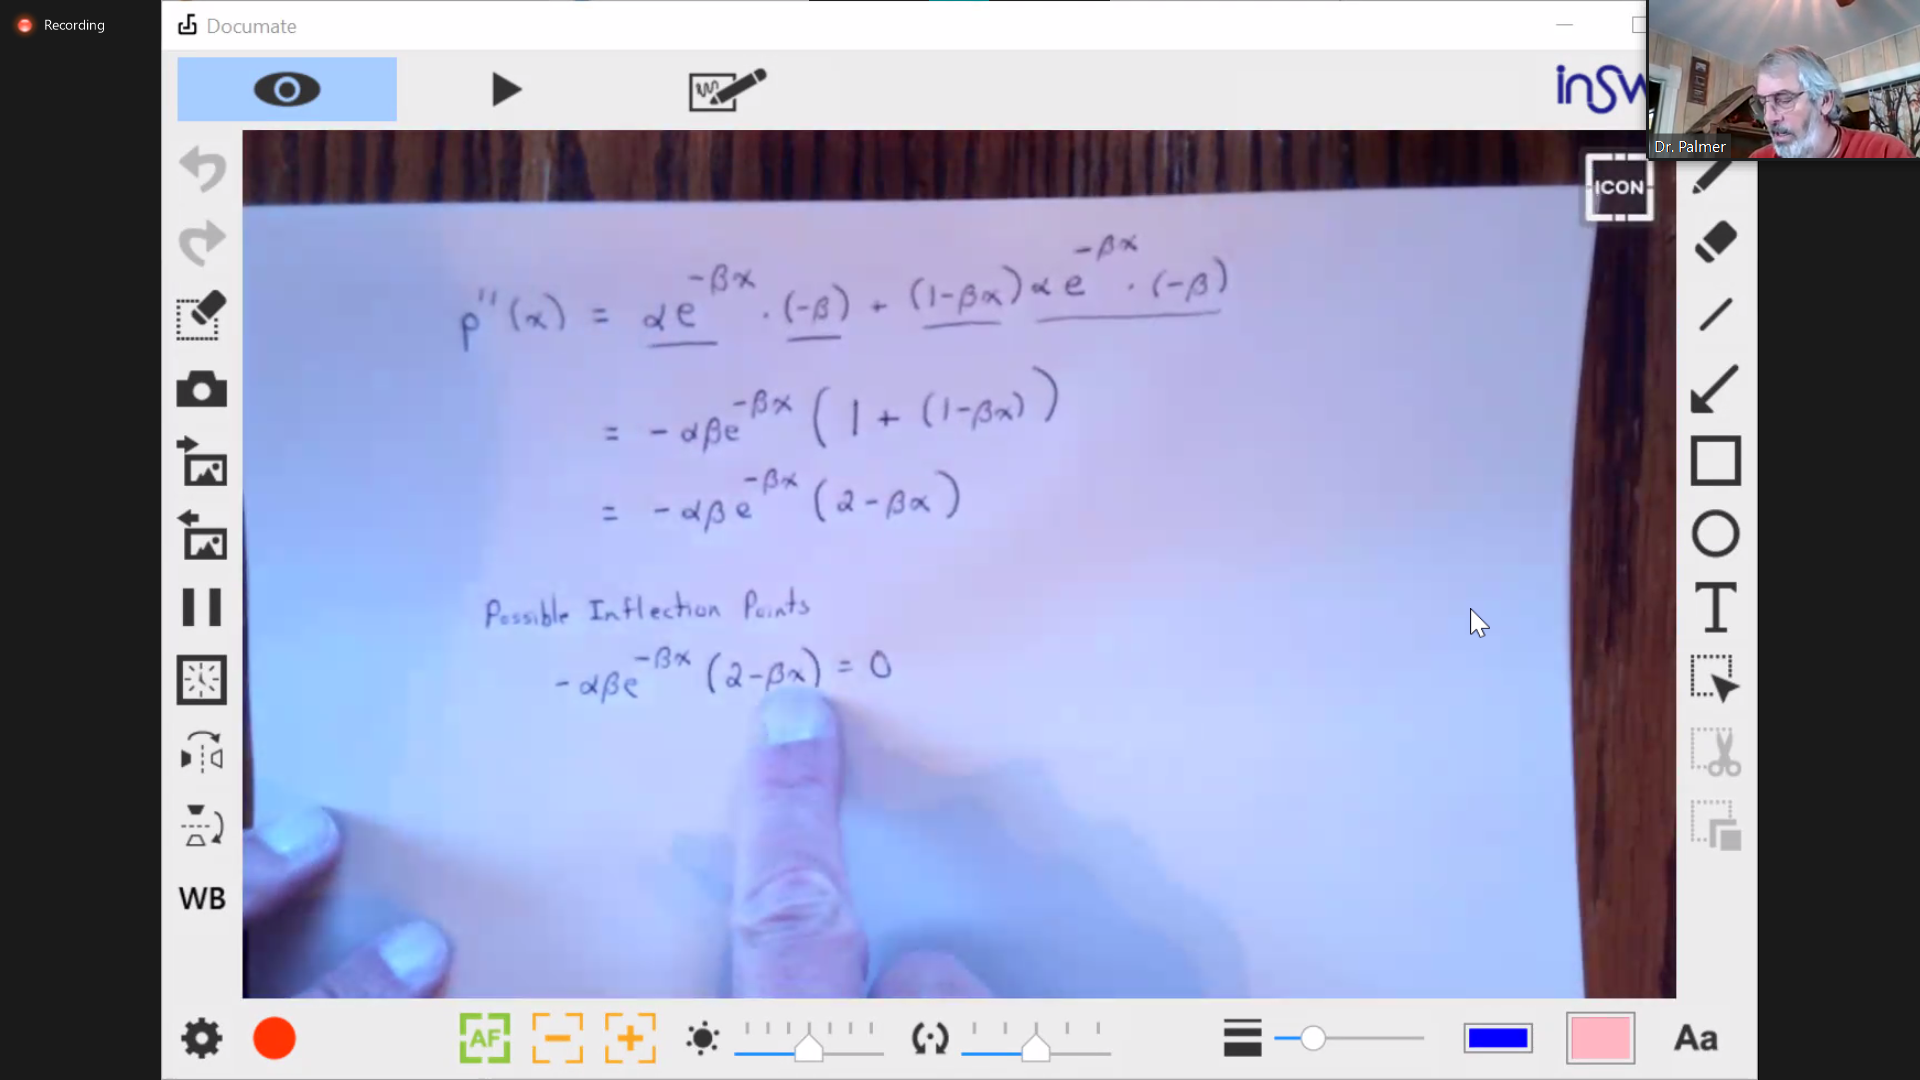 Recording
Documate
inSw
Dr. Palmer
ICON
p''(x) = αe^{-βx} · (-β) + (1-βx)αe^{-βx} · (-β)
= -αβe^{-βx} (1 + (1-βx))
= -αβe^{-βx} (2-βx)
Possible Inflection Points
-αβe^{-βx} (2-βx) = 0
WB
T
AF
Aa